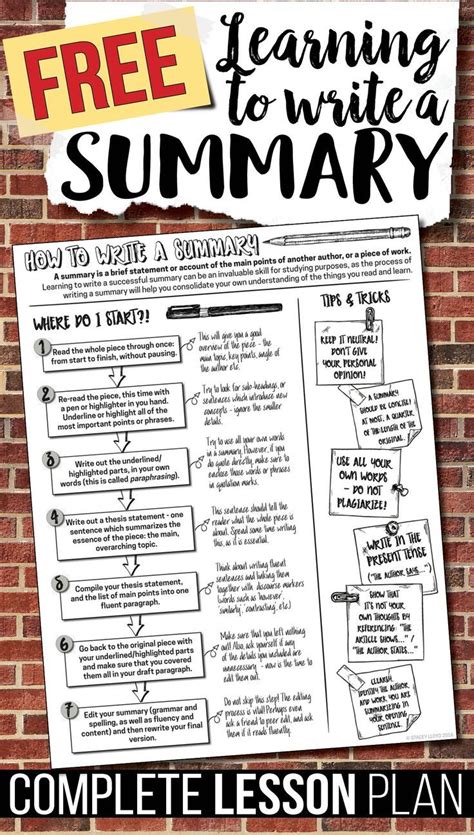 FREE
Learning
to write a
SUMMARY
HOW TO WRITE A SUMMARY
A summary is a brief statement or account of the main points of another author, or a piece of work.
Learning to write a successful summary can be an invaluable skill for studying purposes, as the process of
writing a summary will help you consolidate your own understanding of the things you read and learn.
WHERE DO I START?!
1
Read the whole piece through once:
from start to finish, without pausing.
This will give you a good
overview of the piece - the
main topic, key points, angle of
the author etc.
2
Re-read the piece, this time with
a pen or highlighter in you hand.
Underline or highlight all of the
most important points or phrases.
Try to look for sub-headings, or
sentences which introduce new
concepts - ignore the smaller
details.
3
Write out the underlined/
highlighted parts, in your own
words (this is called paraphrasing).
Try to use all your own words
in a summary. However, if you
do quote directly, make sure to
enclose those words or phrases
in quotation marks.
4
Write out a thesis statement - one
sentence which summarizes the
essence of the piece: the main,
overarching topic.
This sentence should tell the
reader what the whole piece is
about. Spend some time writing
this, as it is essential.
5
Compile your thesis statement,
and the list of main points into one
fluent paragraph.
Think about writing fluent
sentences and linking them
together with discourse markers
(words such as 'however',
'similarly', 'contrasting', etc.)
6
Go back to the original piece with
your underlined/highlighted parts
and make sure that you covered
them all in your draft paragraph.
Make sure that you left nothing
out! Also, ask yourself if any
of the details you included are
unnecessary - now is the time to
edit them out.
7
Edit your summary (grammar and
spelling, as well as fluency and
content) and then rewrite your final
version.
Do not skip this step! The editing
process is vital! Perhaps even
ask a friend to peer edit, and ask
them if it reads fluently.
TIPS & TRICKS
KEEP IT NEUTRAL!
DON'T GIVE
YOUR PERSONAL
OPINION!
A SUMMARY
SHOULD BE CONCISE:
AT MOST, A QUARTER
OF THE LENGTH OF THE
ORIGINAL.
USE ALL YOUR
OWN WORDS
- DO NOT
PLAGIARIZE!
WRITE IN THE
PRESENT TENSE
("THE AUTHOR SAYS...")
SHOW THAT
IT'S NOT YOUR
OWN THOUGHTS BY
REFERENCING: "THE
ARTICLE SHOWS..." /
"THE AUTHOR STATES..."
CLEARLY
IDENTIFY THE AUTHOR
AND WORK YOU ARE
SUMMARIZING IN
YOUR OPENING
SENTENCE.
© STACEY LLOYD 2016
COMPLETE LESSON PLAN